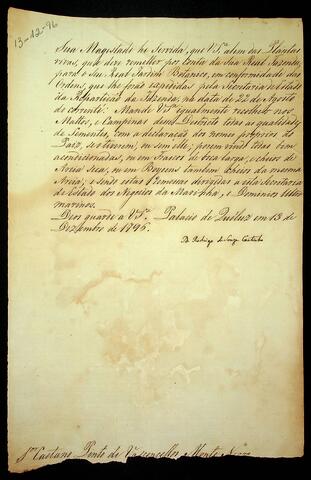 13-12-96
Sua Magestade he Servida, que V.S.ª alem das Plantas
vivas, que deve remetter por conta da Sua Real Fazenda,
para o Seu Real Jardim Botanico, em conformidade das
Ordens, que lhe forão expedidas pela Secretaria de Estado
da Repartição da Fazenda, na data de 22 de Agosto
do corrente: Mande V.S.ª igualmente recolher nos
Mattos, e Campinas desse Districto todas as qualidades
de Sementes, com a declaração dos nomes proprios do
Paiz, se os tiverem, ou sem elle; porem vindo todas bem
acondicionadas, ou em Frascos de boca larga, e cheios de
Area Seca, ou em Boyoens tambem cheios da mesma
Area; e sendo estas Remessas dirigidas a esta Secretaria
de Estado dos Negocios da Marinha, e Dominios Ultra-
marinos.
Deos guarde a V.S.ª Palacio de Queluz em 13 de
Dezembro de 1796.
D. Rodrigo de Souza Coutinho
S.r Caetano Pinto de Vasconcellos Monte Negro